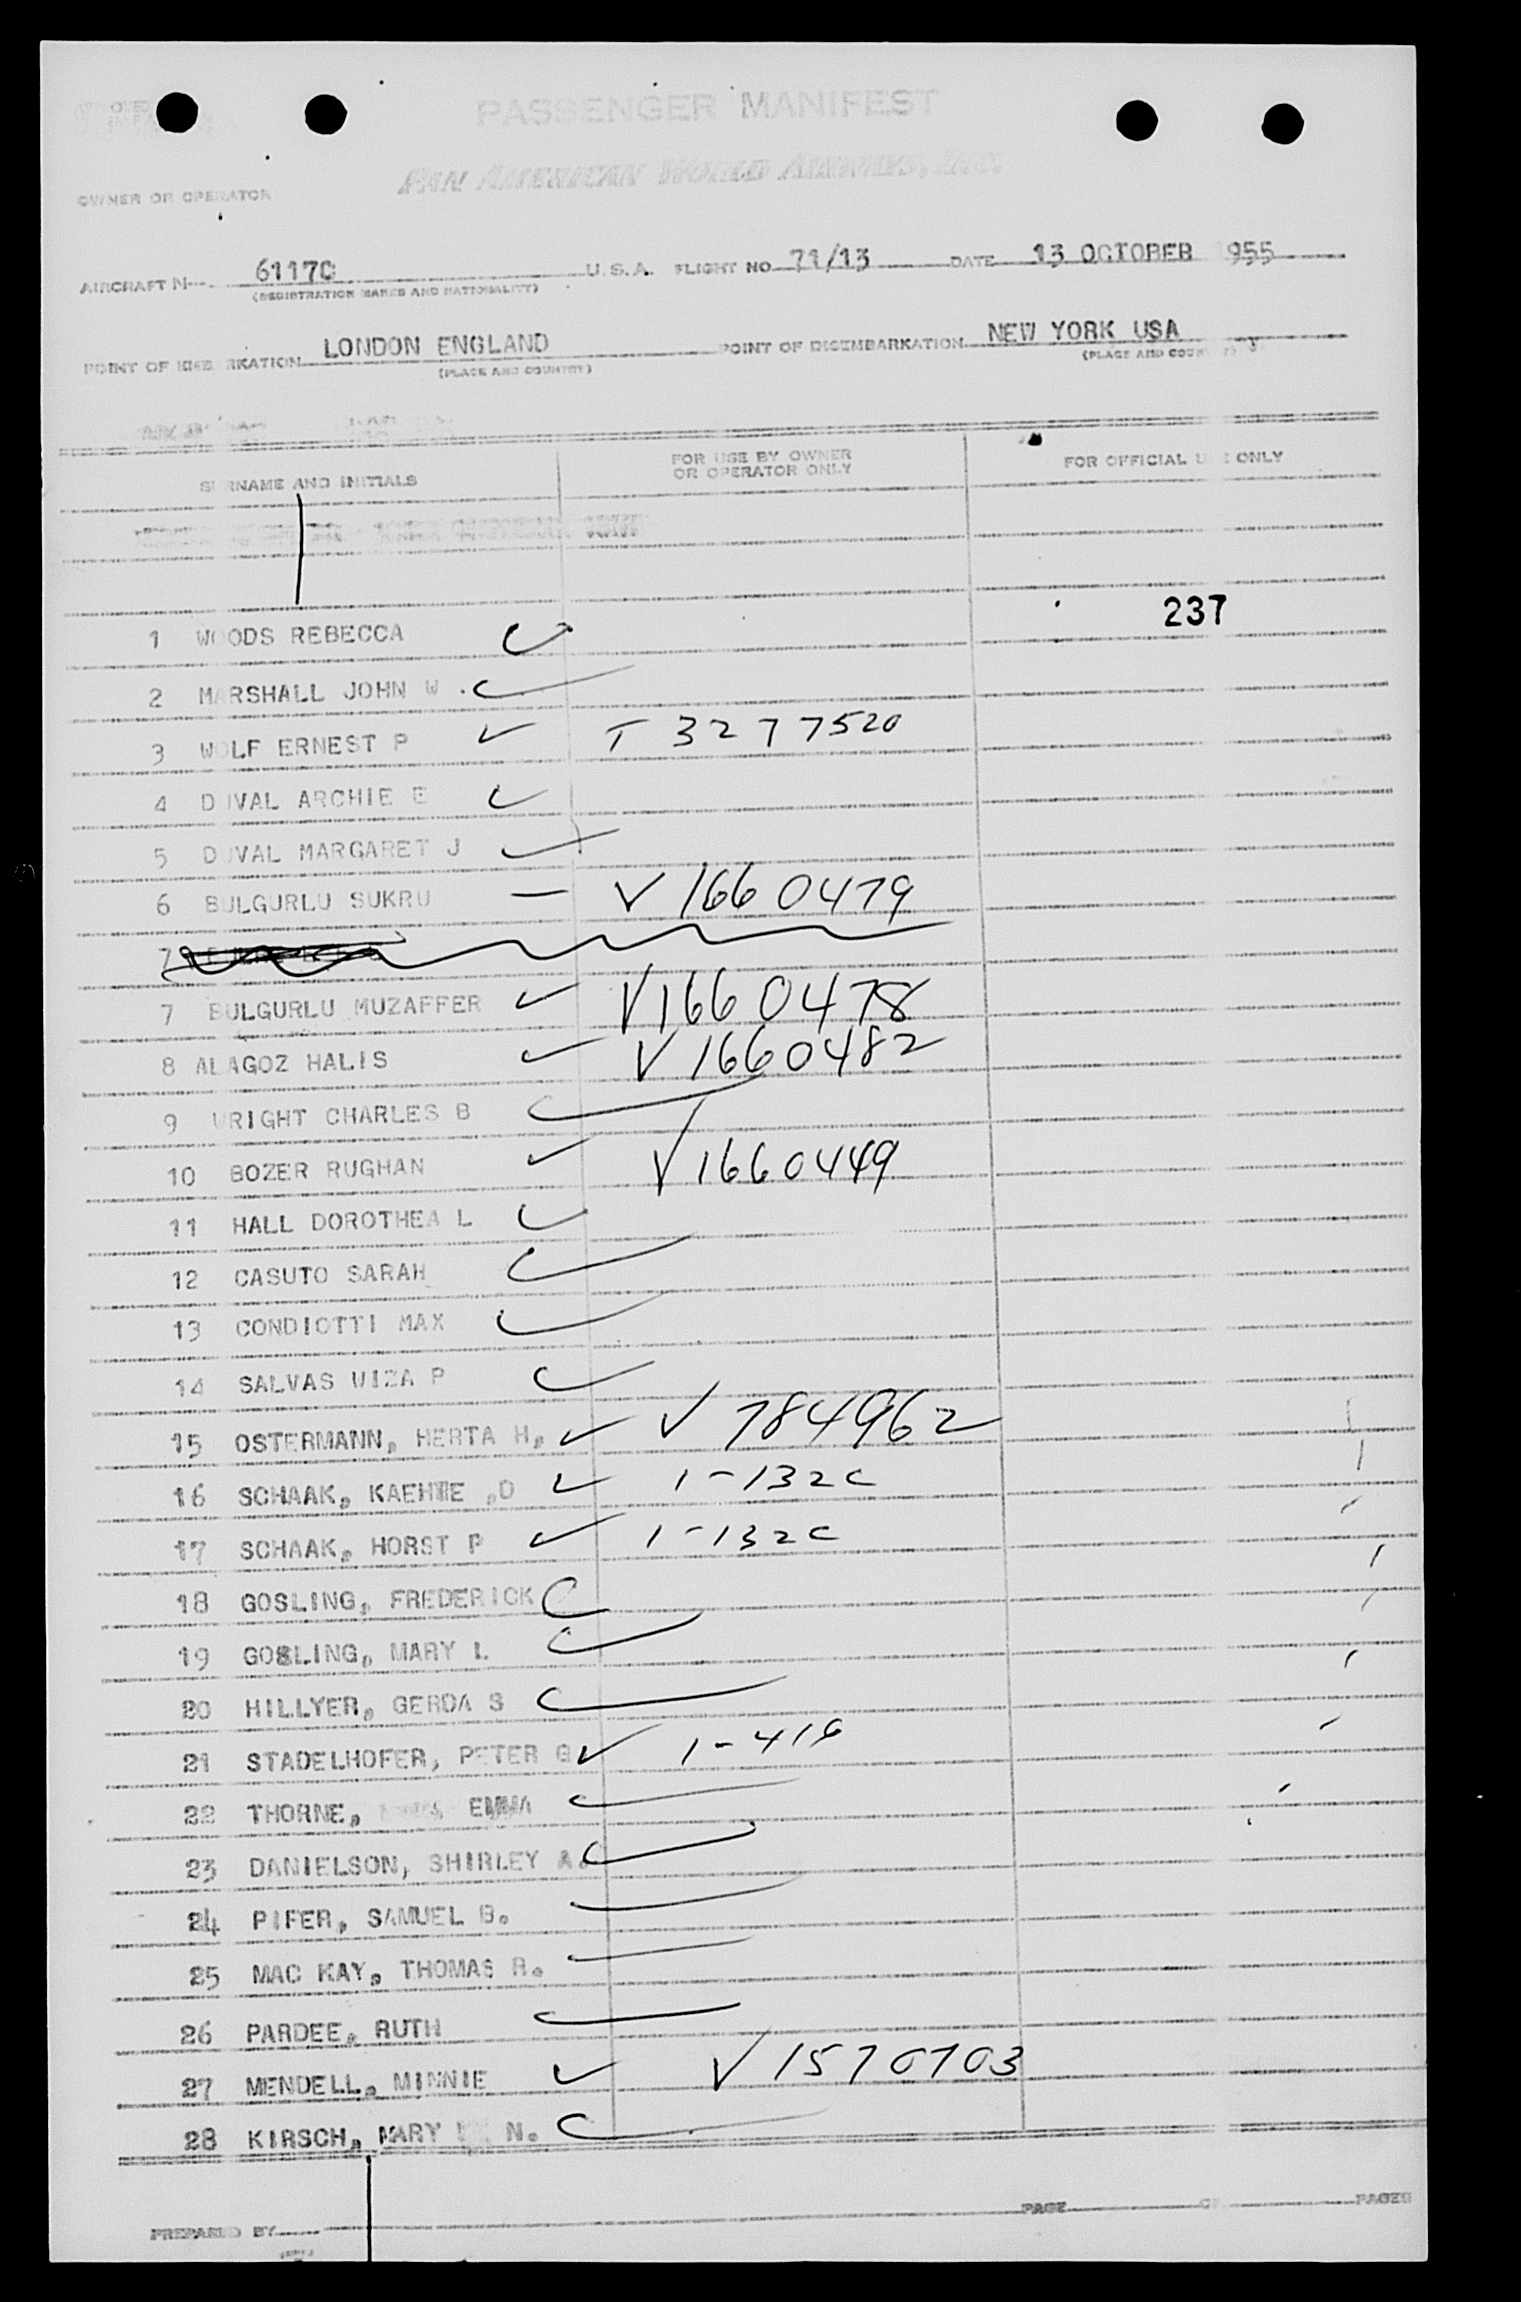 PASSENGER MANIFEST
PAN AMERICAN WORLD AIRWAYS, INC.
OWNER OR OPERATOR
AIRCRAFT N 6117C U.S.A. FLIGHT NO 71/13 DATE 13 OCTOBER 955
(REGISTRATION MARKS AND NATIONALITY)
POINT OF EMB RKATION LONDON ENGLAND POINT OF DISEMBARKATION NEW YORK USA
(PLACE AND COUNTRY) (PLACE AND COUNTRY)
SURNAME AND INITIALS FOR USE BY OWNER OR OPERATOR ONLY FOR OFFICIAL USE ONLY
237
1 WOODS REBECCA
2 MARSHALL JOHN W .
3 WOLF ERNEST P ✓ T 3277520
4 DUVAL ARCHIE E
5 DUVAL MARGARET J
6 BULGURLU SUKRU — V 1660479
7
7 BULGURLU MUZAFFER ✓ V1660478
8 ALAGOZ HALIS ✓ V 1660482
9 WRIGHT CHARLES B
10 BOZER RUGHAN ✓ V1660449
11 HALL DOROTHEA L
12 CASUTO SARAH
13 CONDIOTTI MAX
14 SALVAS WIZA P
15 OSTERMANN, HERTA H, ✓ V 784962
16 SCHAAK, KAEHTE ,D ✓ 1-132C
17 SCHAAK, HORST P ✓ 1-132C
18 GOSLING, FREDERICK
19 GOSLING, MARY I.
20 HILLYER, GERDA S
21 STADELHOFER, PETER G ✓ 1-419
22 THORNE, EMMA
23 DANIELSON, SHIRLEY A.
24 PIFER, SAMUEL B.
25 MAC KAY, THOMAS R.
26 PARDEE, RUTH
27 MENDELL, MINNIE ✓ V 1570703
28 KIRSCH, MARY N.
PREPARED BY PAGE OF PAGES